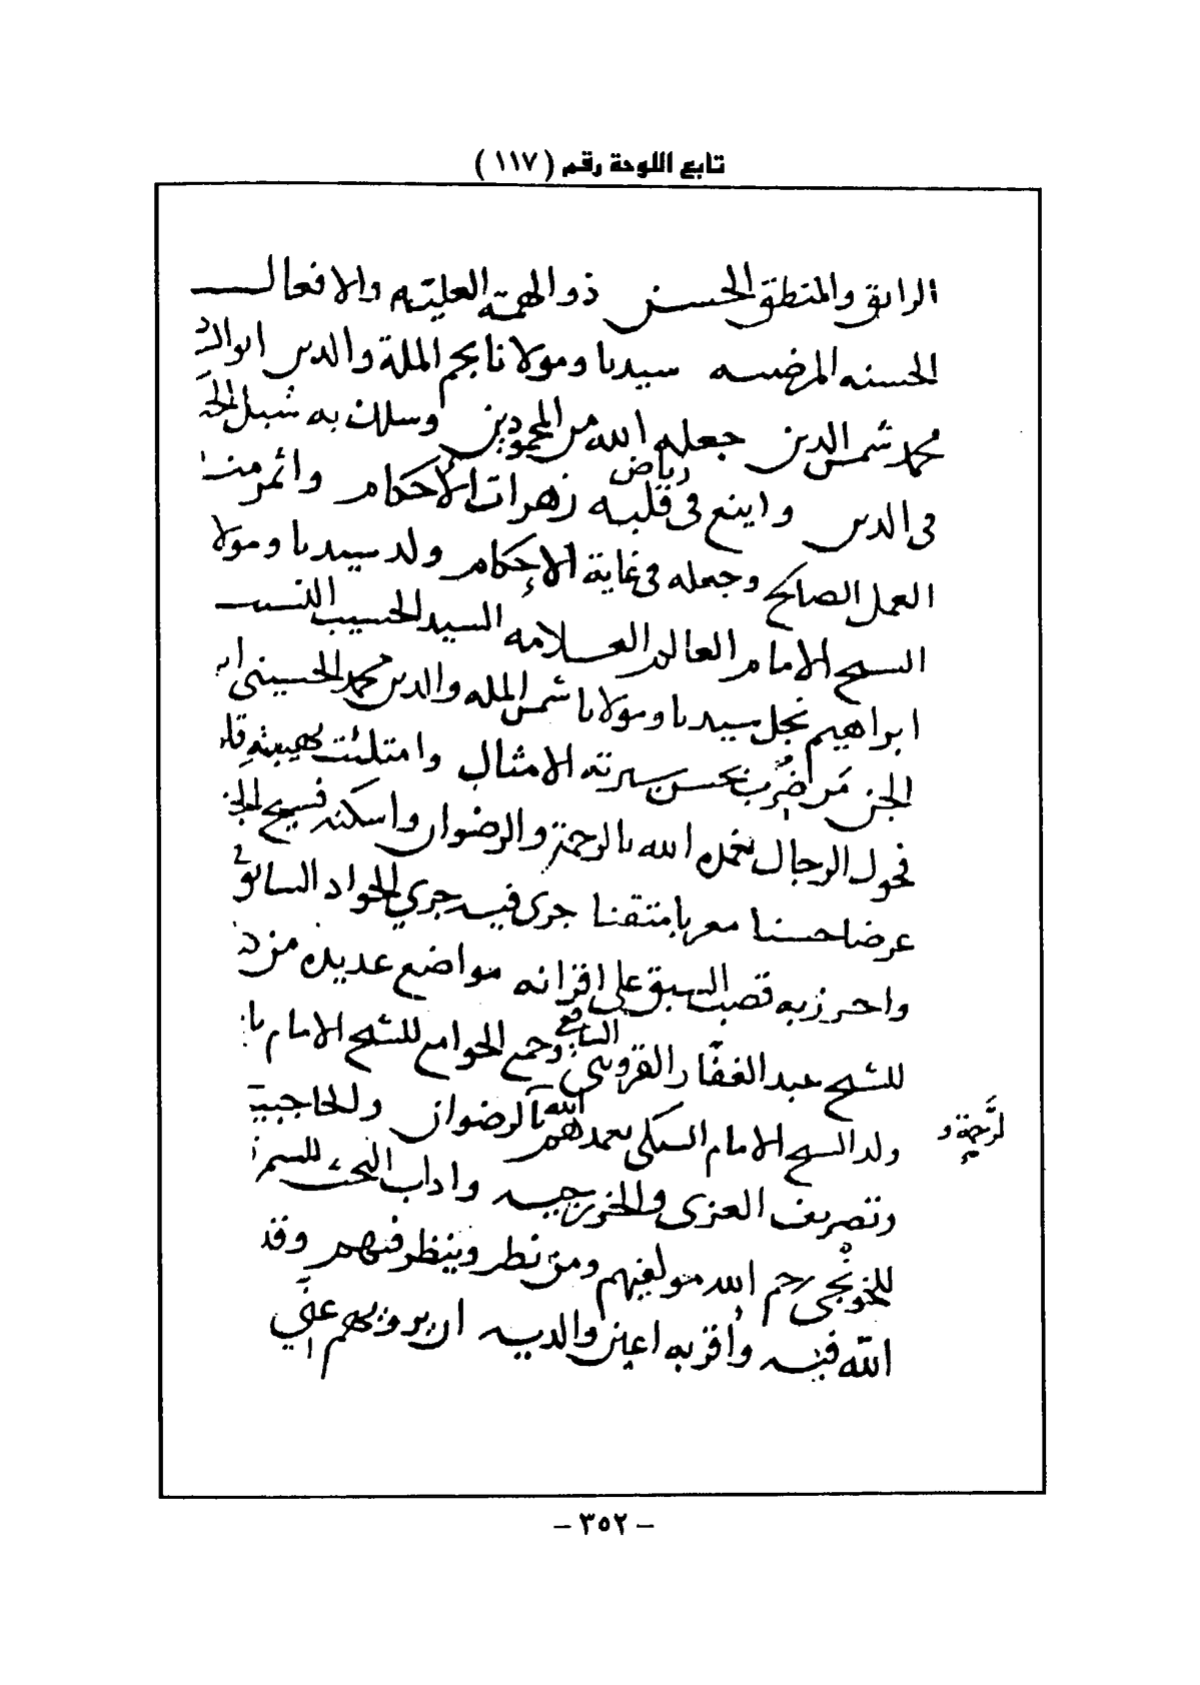 تابع اللوحة رقم ( ١١٧ )
الرايق والمنطق الحسن ذو الهمة العليّه والافعال
الحسنه المرضيه سيدنا ومولانا نجم الملة والدين ابو
محمد شمس الدين جعله الله من المجودين وسلك به سبل
فى الدين واينع فى رياض قلبه زهرات الأحكام واثمر منه
العمل الصالح وجعله فى غاية الإحكام ولد سيدنا ومولا
الشيخ الامام العالم العلامه السيد الحسيب النسيب
ابراهيم نجل سيدنا ومولانا شمس المله والدين محمد الحسينى
الجن مَن ضُرب بحسن سيرته الامثال وامتلئت بهيبته
فحول الرجال تغمده الله بالرحمة والرضوان واسكنه فسيح
عرضا حسنا معربا متقنا جرى فيه جري الجواد السابق
واحرز به قصب السبق على اقرانه مواضع عديده من
للشيخ عبد الغفّار القزوينى الشافعي وجمع الجوامع للشيخ الامام
ولد الشيخ الامام السبكى تغمدهم الله بالرضوان والحاجبية
لرَّحمة و
وتصريف العزى والخزرجيه واداب البحث
للخونجى رحم الله مولفيهم ومن نظر وينظر فيهم وقد
الله فيه وأقر به اعين والديه ان يروي بهم عنّي
- ٣٥٢ -